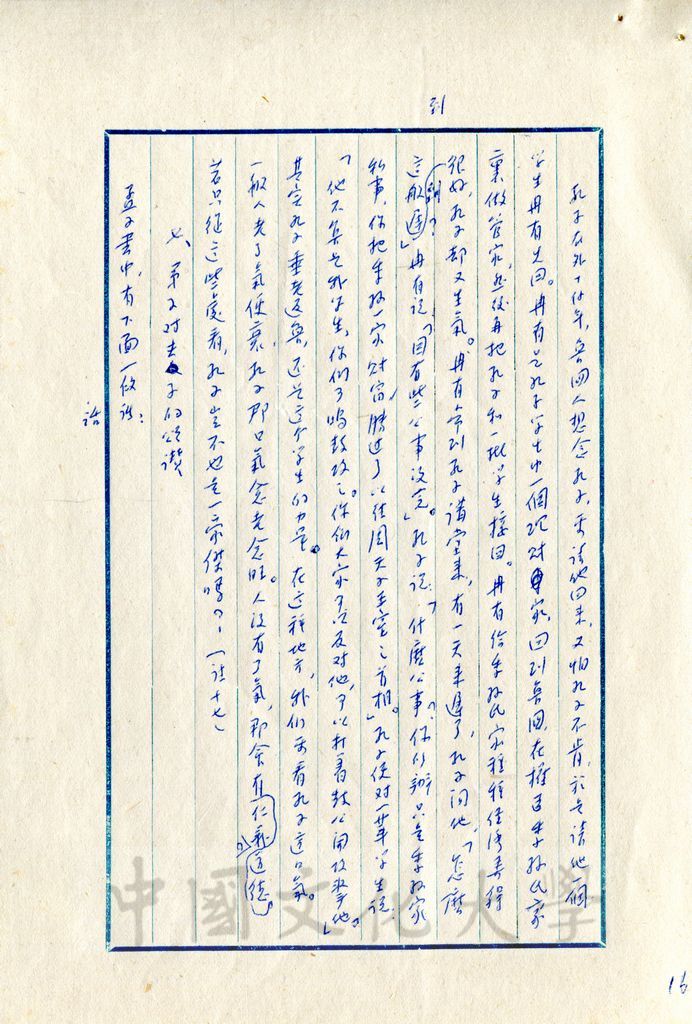 到
孔子在外十餘年，魯國人想念孔子，要請他回來，又怕孔子不肯，於是請他一個
學生冉有先回。冉有是孔子學生中一個理財家，回到魯國，在權臣季孫氏家
裏做管家，然後再把孔子和一批學生接回。冉有給季孫氏家種種經濟弄得
很好，孔子却又生氣。冉有常到孔子講堂來，有一天來遲了，孔子問他，「怎麼
這般遲到？」冉有說「因有些公事沒完。」孔子說「什麼公事？你所辦只是季孫家
私事，你把季孫一家財富，勝過了以往周天子王室之首相。」孔子便對一輩學生說：
「他不算是我學生，你們可鳴鼓攻之。你們大家可以反對他，可以打着鼓公開攻擊他。」
其實孔子垂老返魯，還是這个學生的力量。在這種地方，我們要看孔子這口氣。
一般人老了氣便衰，孔子那口氣愈老愈旺。人沒有了氣，那會有仁義道德。
若只從這些處看，孔子豈不也是一豪傑嗎？（註十七）
七、弟子對夫子的頌讚
孟子書中，有下面一條話：
話
16
中國文化大學